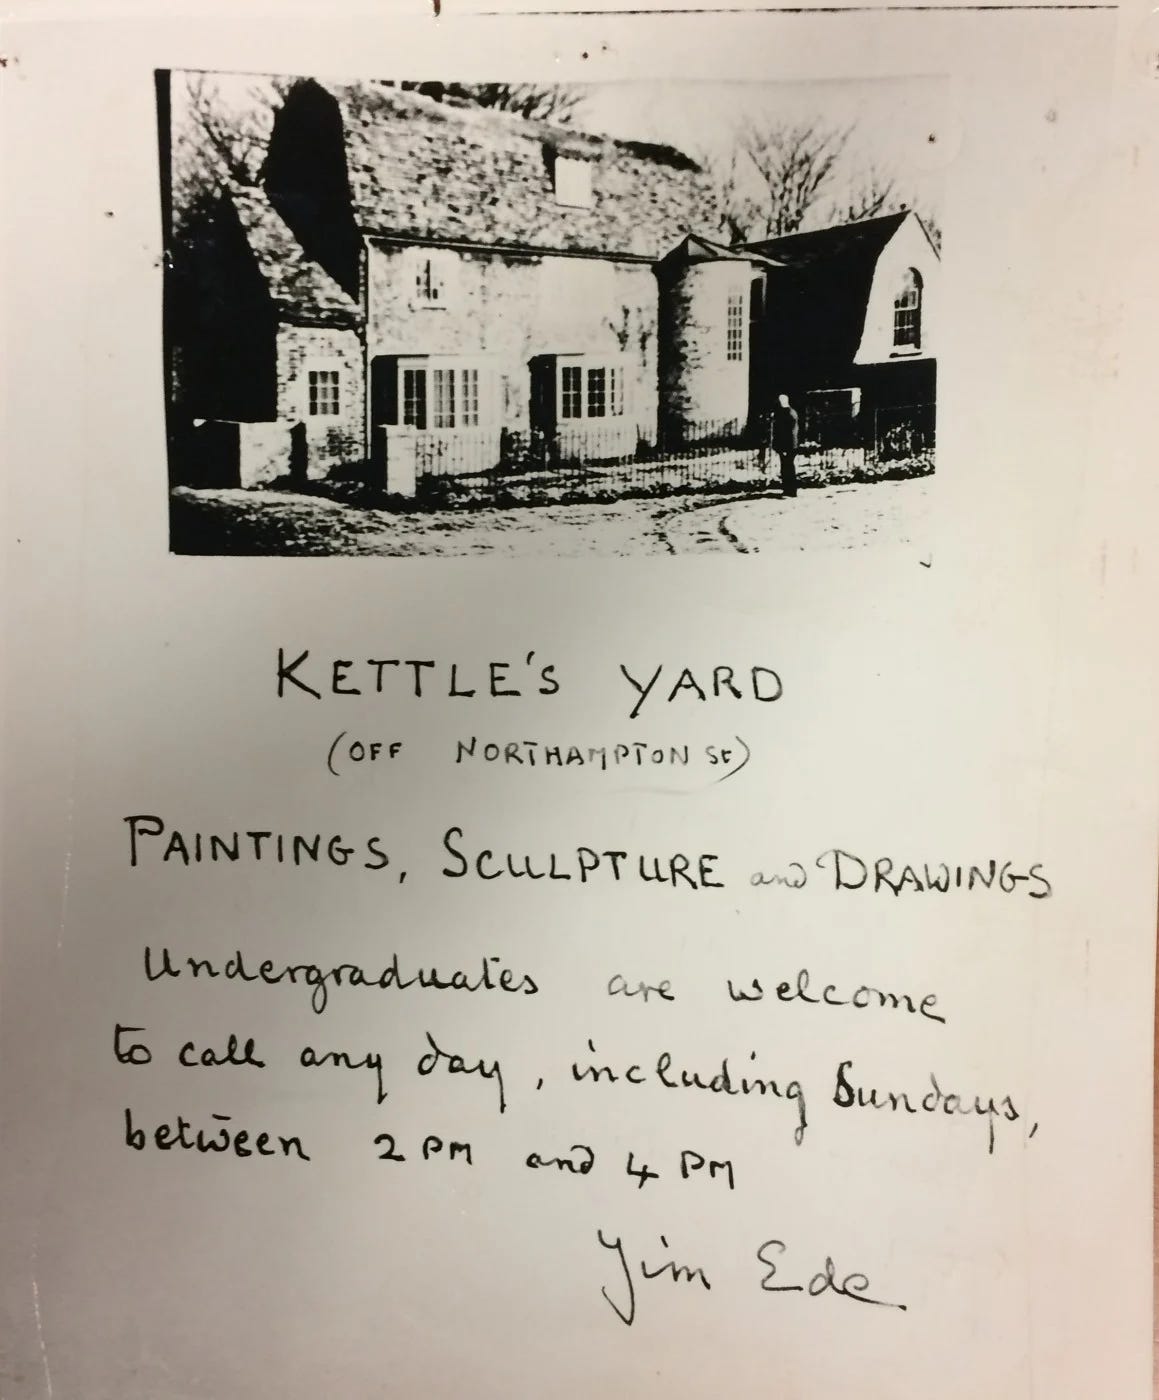 KETTLE'S YARD
(OFF NORTHAMPTON St)
PAINTINGS, SCULPTURE and DRAWINGS
Undergraduates are welcome
to call any day, including Sundays,
between 2 PM and 4 PM
Jim Ede